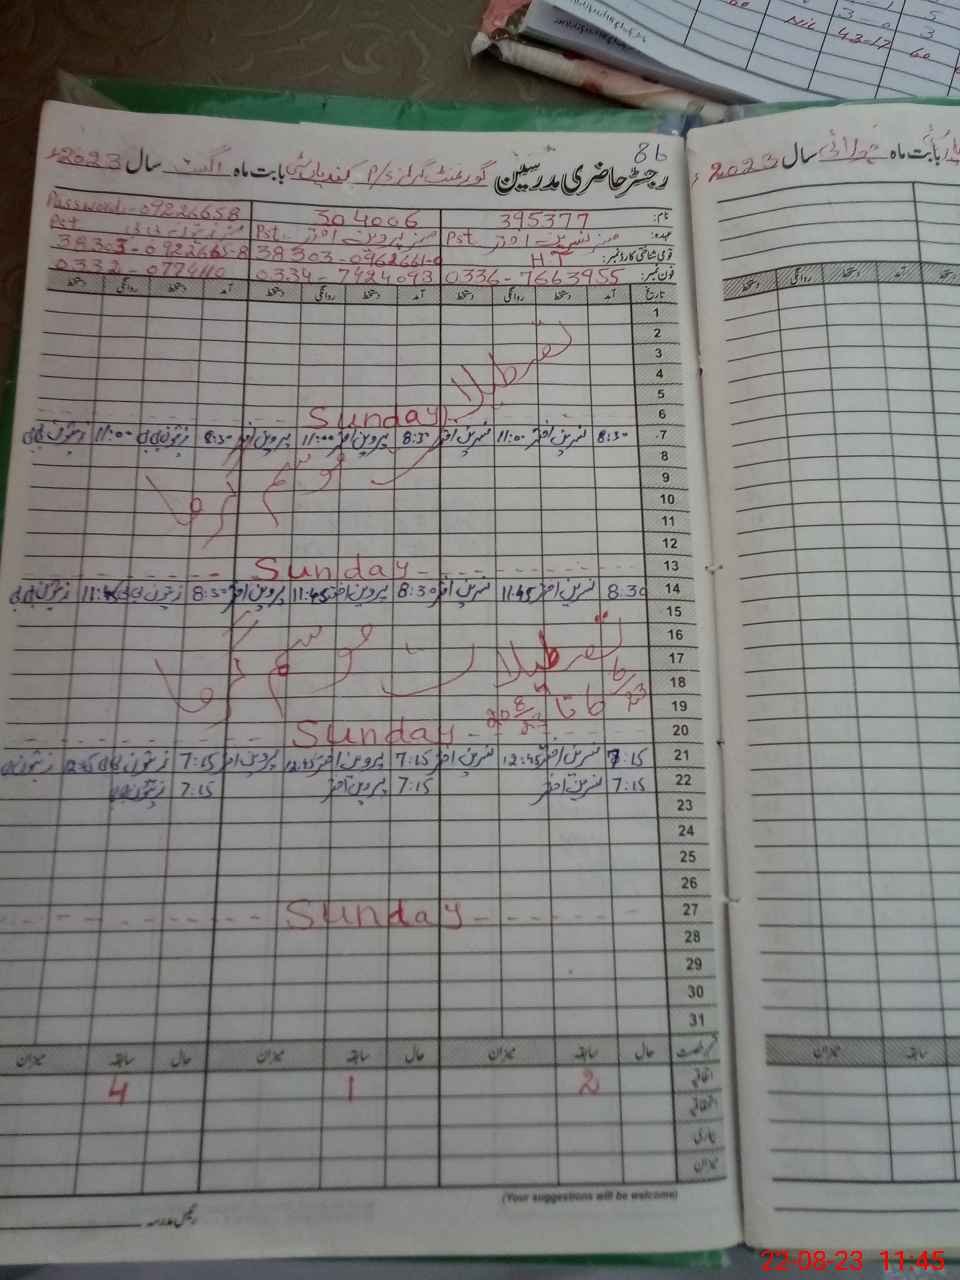 86
رجسٹر حاضری مدرسین گورنمنٹ گرلز P/S بابت ماہ اگست سال 2023ء
نام: 395377 504006 Password:-09226658
عہدہ: مسز نسرین اختر Pst مسز پروین اختر Pst Pst
قومی شناختی کارڈ نمبر: HT 38303-0962661-0 38303-0922665-8
فون نمبر: 0336-7663955 0334-7924093 0332-0774110
تاریخ آمد دستخط روانگی دستخط آمد دستخط روانگی دستخط آمد دستخط روانگی دستخط
1
2
3
4
5
تعطیلات
6 Sunday
7 8:30 نسرین اختر 11:00 نسرین اختر 8:30 پروین اختر 11:00 پروین اختر 8:30 زیتون بی بی 11:00 زیتون بی بی
8
9
موسم گرما
10
11
12
13 Sunday
14 8:30 نسرین اختر 11:45 نسرین اختر 8:30 پروین اختر 11:45 پروین اختر 8:30 زیتون بی بی 11:45 زیتون بی بی
15
16
17
تعطیلات موسم گرما
18
19
20 Sunday
21 7:15 نسرین اختر 12:45 نسرین اختر 7:15 پروین اختر 12:45 پروین اختر 7:15 زیتون بی بی 12:45 زیتون
22 7:15 نسرین اختر 7:15 پروین اختر 7:15 زیتون بی بی
23
24
25
26
27 Sunday
28
29
30
31
حال سابقہ میزان حال سابقہ میزان حال سابقہ میزان
اتفاقی 2 1 4
استحقاقی
بیماری
میزان
(Your suggestions will be welcome)
رئیس مدرسہ
بابت ماہ جولائی سال 2023ء
دستخط روانگی دستخط آمد دستخط
میزان سابقہ
5
3-0
3
Nil 43-17 60
22-08-23 11:45